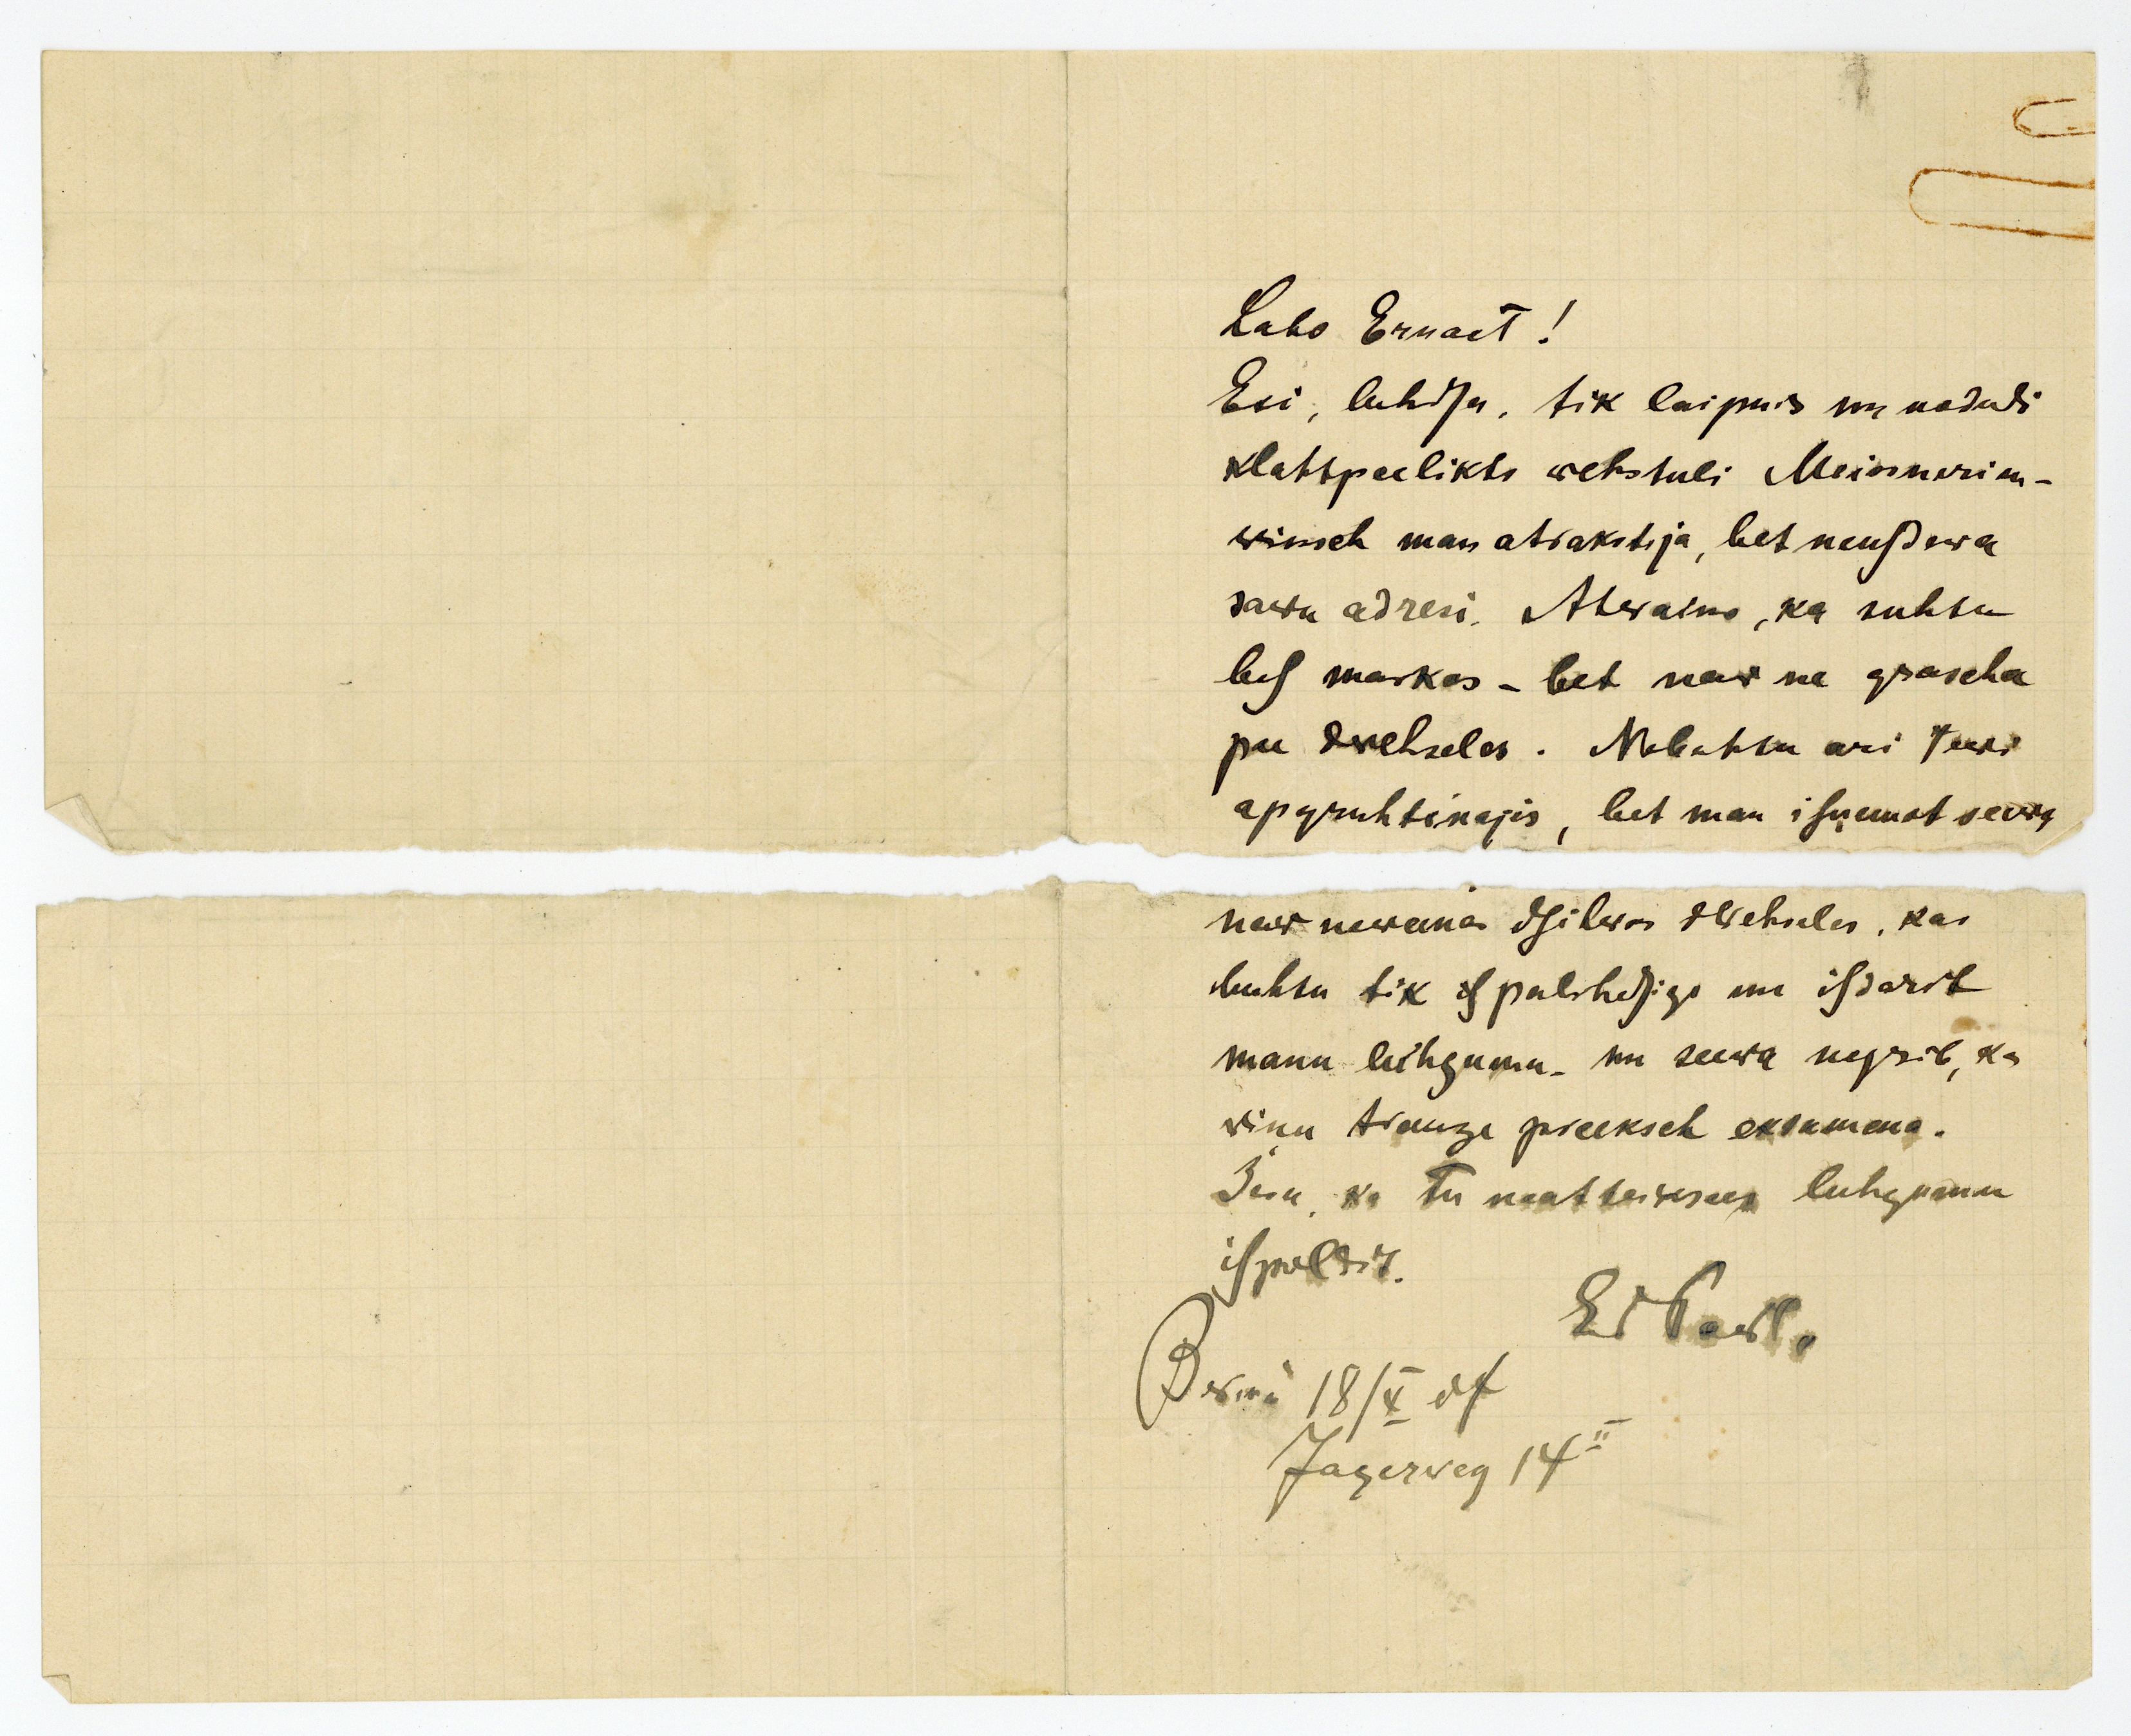 Labo Ernast!
Esi, luhdsu, tik laipnis un nododi
klahtpeelikto wehstuli Meissnerim –
winsch man atrakstija, bet neusdewa
sawu adresi. Atwaino, ka suhtu
bes markas – bet naw ne grascha
pee dwehseles. Nebuhtu ari Tewi
apgruhtinajis, bet man isņemot seewa
naw neweenas dsihwas dwehseles, kas
buhtu tik ispalihdsiga un isdarit
manu luhgumu – un seewa negrib, ka
viņu trauze preeksch eksamena.
Zeru, ka Tu neatteiksees luhgumu
ispildit.
Bernē 18/X 04
Jägerweg 14 II